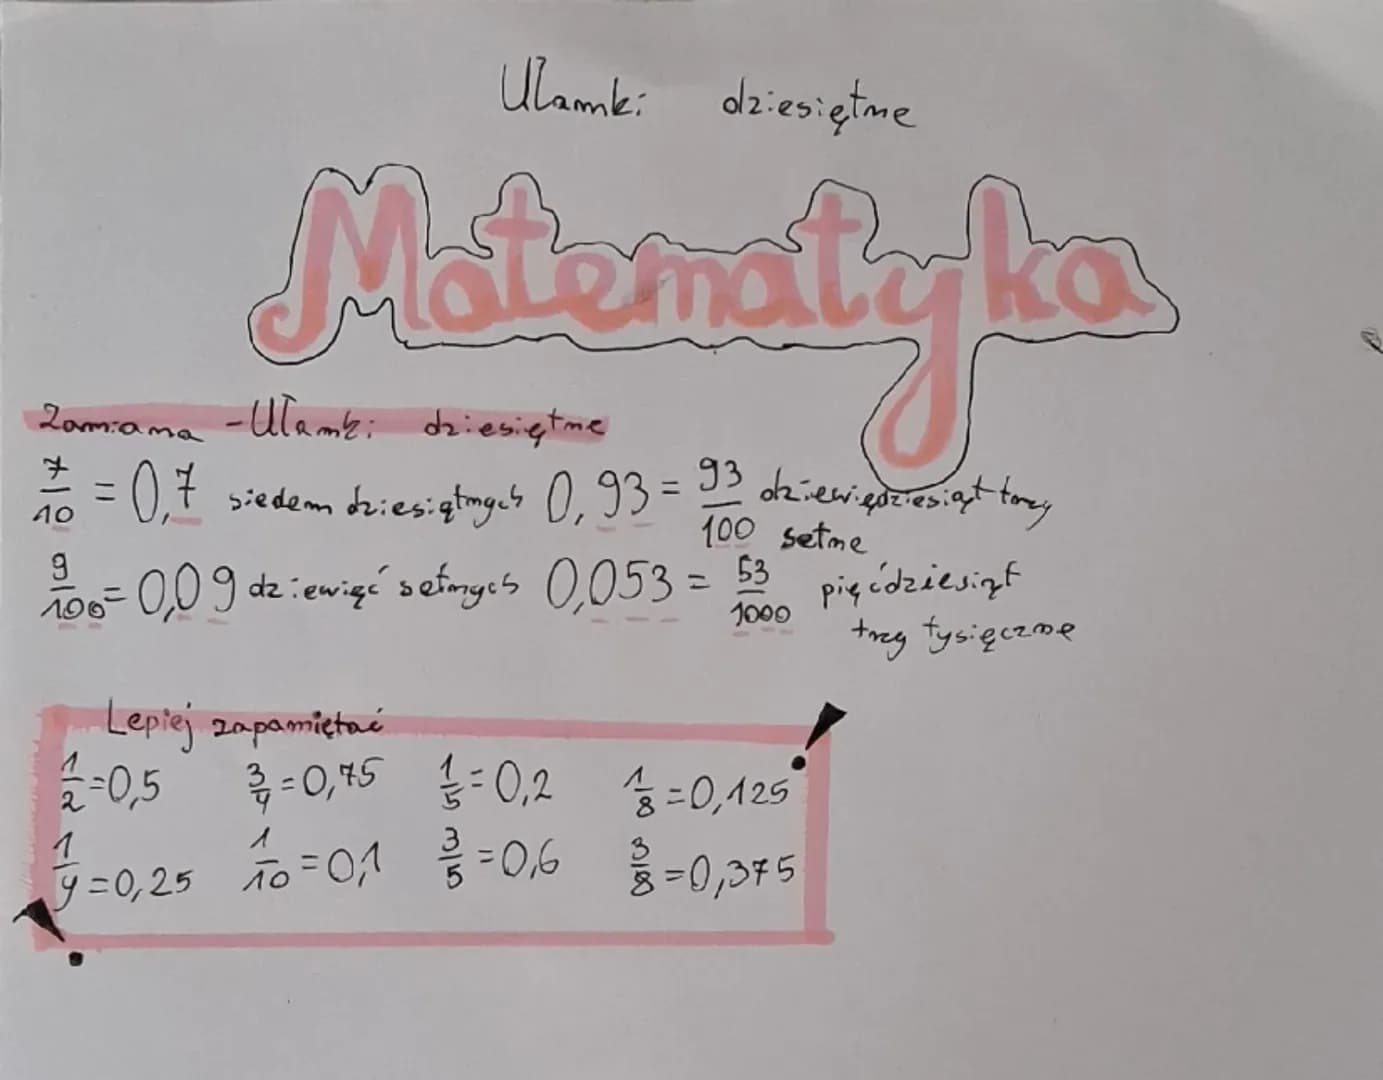 Ułamki dziesiętne
Matematyka
Zamiana - Ułamki dziesiętne
7/10 = 0,7 siedem dziesiątnych 0,93 = 93/100 dziewiędziesiąt trzy setne
9/100 = 0,09 dziewięć setnych 0,053 = 53/1000 pięćdziesiąt trzy tysięczne
Lepiej zapamiętać
1/2 = 0,5 3/4 = 0,75 1/5 = 0,2 1/8 = 0,125
1/4 = 0,25 1/10 = 0,1 3/5 = 0,6 3/8 = 0,375